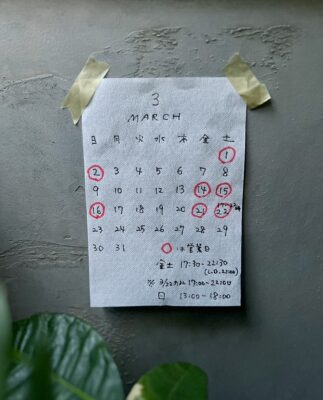 3
MARCH
日 月 火 水 木 金 土
1
2 3 4 5 6 7 8
9 10 11 12 13 14 15
16 17 18 19 20 21 22
23 24 25 26 27 28 29
30 31
○は営業日
金土 17:30-22:30
(L.O.22:00)
※ 3/22 17:00-22:00
日 13:00-18:00